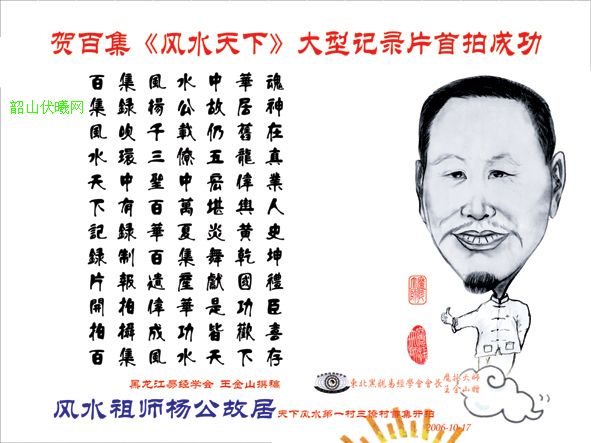 贺百集《风水天下》大型记录片首拍成功
韶山伏曦网
百集風水中華魂
集録楊公故居神
風吹千載仍舊在
水環三僚五龍真
天中聖中居偉業
下有百萬堪輿人
記録華夏炎黄史
録制百集舞乾坤
片報遺產獻國禮
開拍偉華是功臣
拍攝成功皆歡喜
百集風水天下存
黑龙江易经学会 王金山撰稿
东北黑龍易經學會會長 王金山贈
风水祖师杨公故居天下风水第一村三僚村首集开拍
2006-10-17